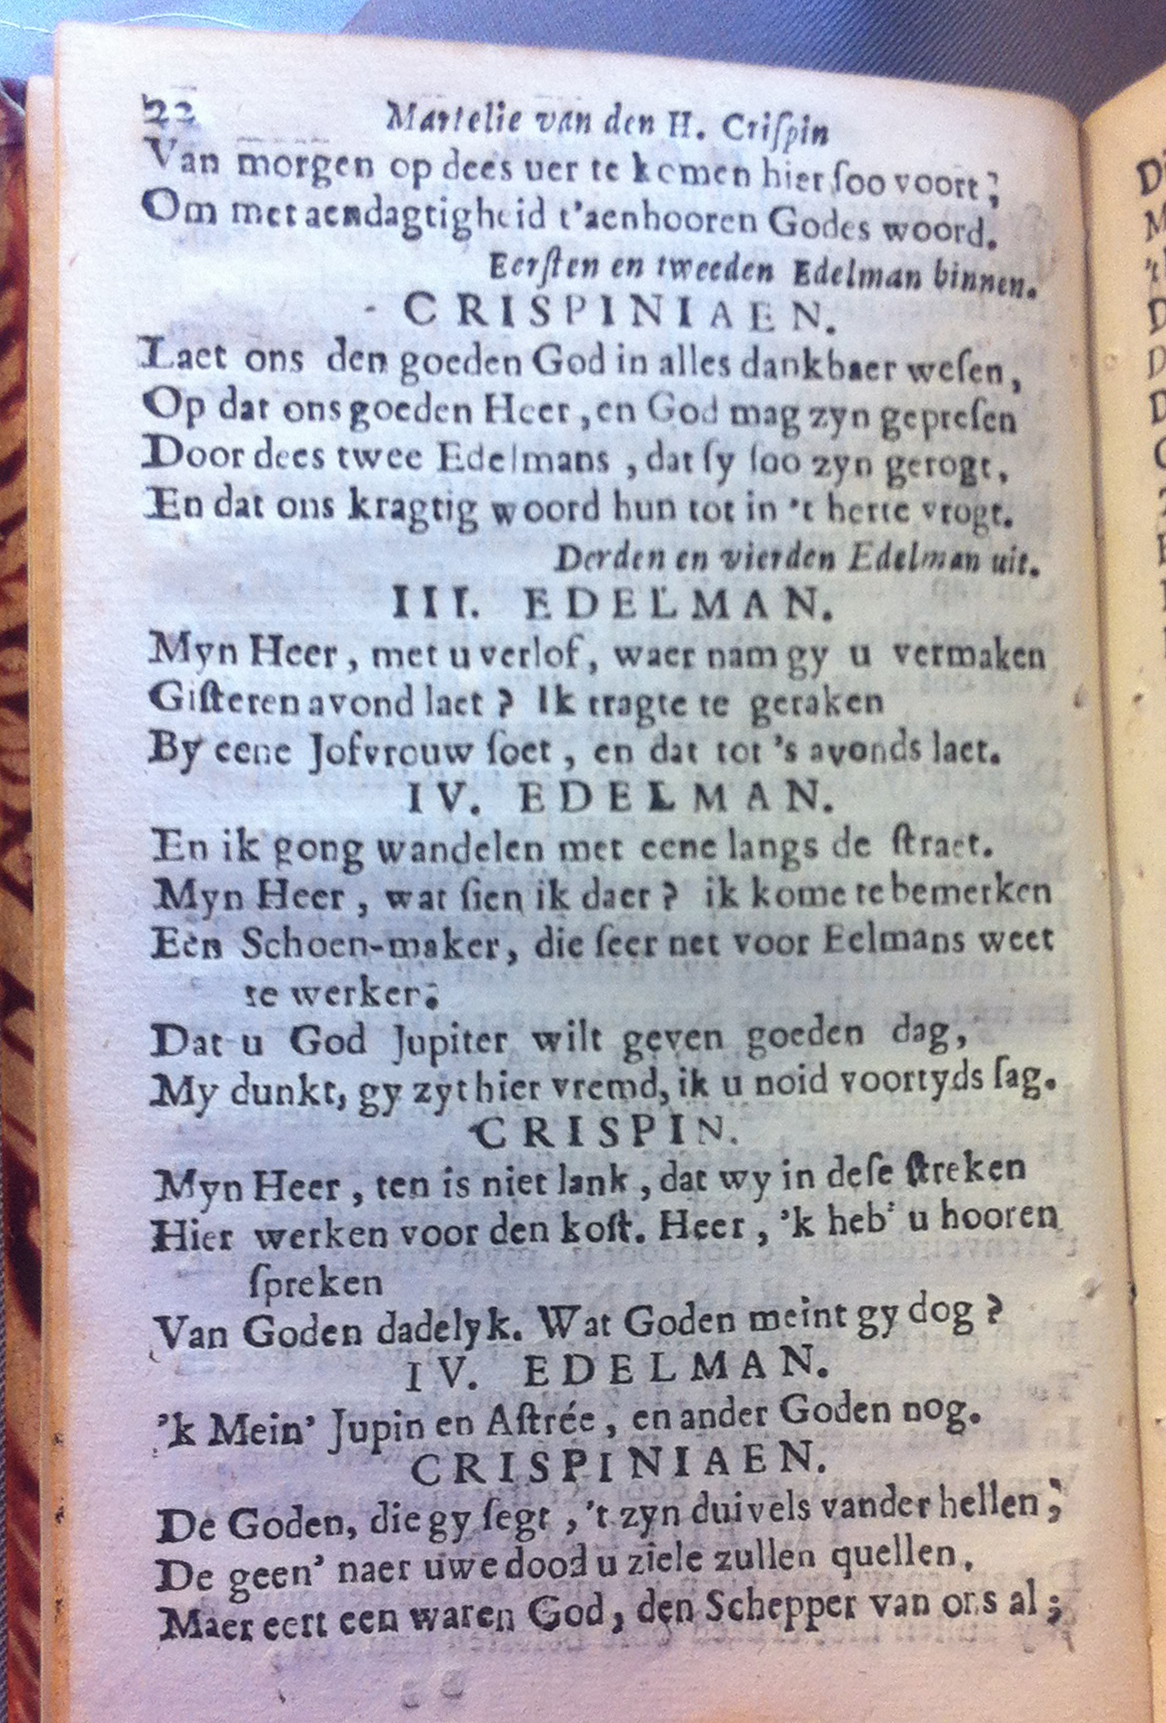 22 Martelie van den H. Criſpin
Van morgen op dees uer te komen hier ſoo voort;
Om met aendagtigheid t'aenhooren Godes woord.
Eerſten en tweeden Edelman binnen.
CRISPINIAEN.
Laet ons den goeden God in alles dankbaer weſen,
Op dat ons goeden Heer, en God mag zyn gepreſen
Door dees twee Edelmans, dat ſy ſoo zyn gerogt,
En dat ons kragtig woord hun tot in 't herte vrogt.
Derden en vierden Edelman uit.
III. EDELMAN.
Myn Heer, met u verlof, waer nam gy u vermaken
Giſteren avond laet? Ik tragte te geraken
By eene Jofvrouw ſoet, en dat tot 's avonds laet.
IV. EDELMAN.
En ik gong wandelen met eene langs de ſtraet.
Myn Heer, wat ſien ik daer? ik kome te bemerken
Een Schoen-maker, die ſeer net voor Eelmans weet
te werken;
Dat u God Jupiter wilt geven goeden dag,
My dunkt, gy zyt hier vremd, ik u noid voortyds ſag.
CRISPIN.
Myn Heer, ten is niet lank, dat wy in deſe ſtreken
Hier werken voor den koſt. Heer, 'k heb' u hooren
ſpreken
Van Goden dadelyk. Wat Goden meint gy dog?
IV. EDELMAN.
'k Mein' Jupin en Aſtrée, en ander Goden nog.
CRISPINIAEN.
De Goden, die gy ſegt, 't zyn duivels vander hellen;
De geen' naer uwe dood u ziele zullen quellen.
Maer eert een waren God, den Schepper van ons al;